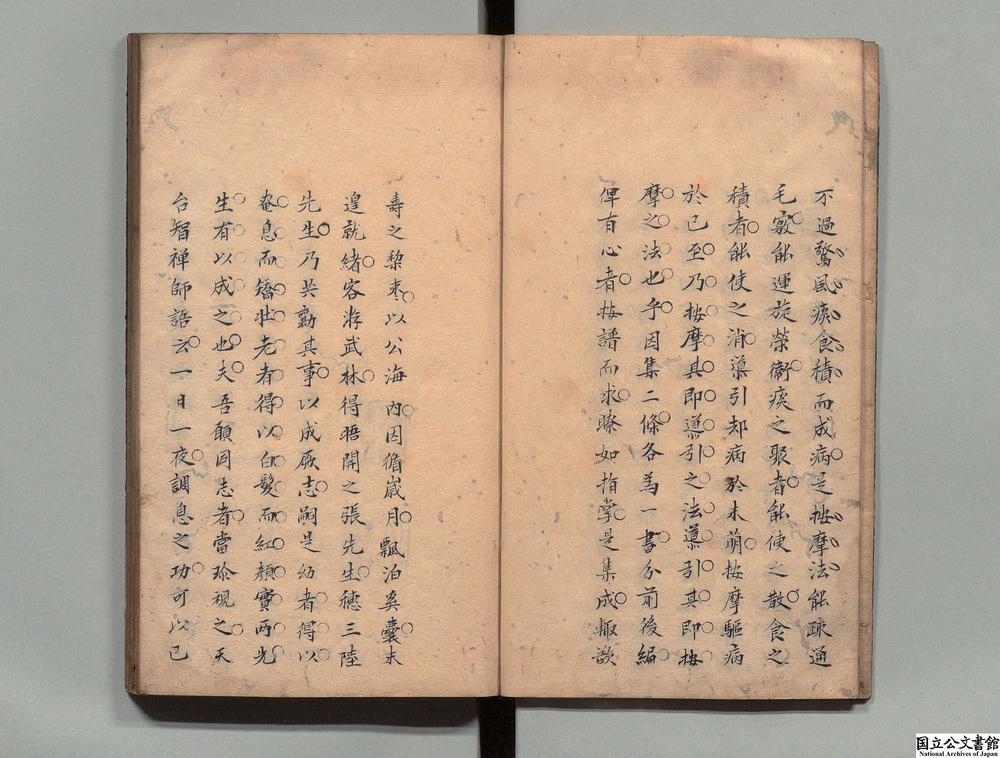 不過驚風痰食積而成病是按摩法能疎通
毛竅能運旋榮衛痰之聚者能使之散食之
積者能使之消道引却病於未萌按摩驅病
於已至乃按摩其即導引之法導引其即按
摩之法也乎因集二條各為一書分前後編
俾有心者按譜而求瞭如指掌是集成輒欲
壽之黎枣以公海內因循嵗月飄泊奚囊未
遑就緒客游武林得晤開之張先生穗三陸
先生乃共勷其事以成厥志嗣是幼者得以
奄息而矯壯老者得以白髮而紅顏實两先
生有以成之也夫吾願同志者當珍視之天
台智禅師語云一日一夜調息之功可以已
国立公文書館
National Archives of Japan